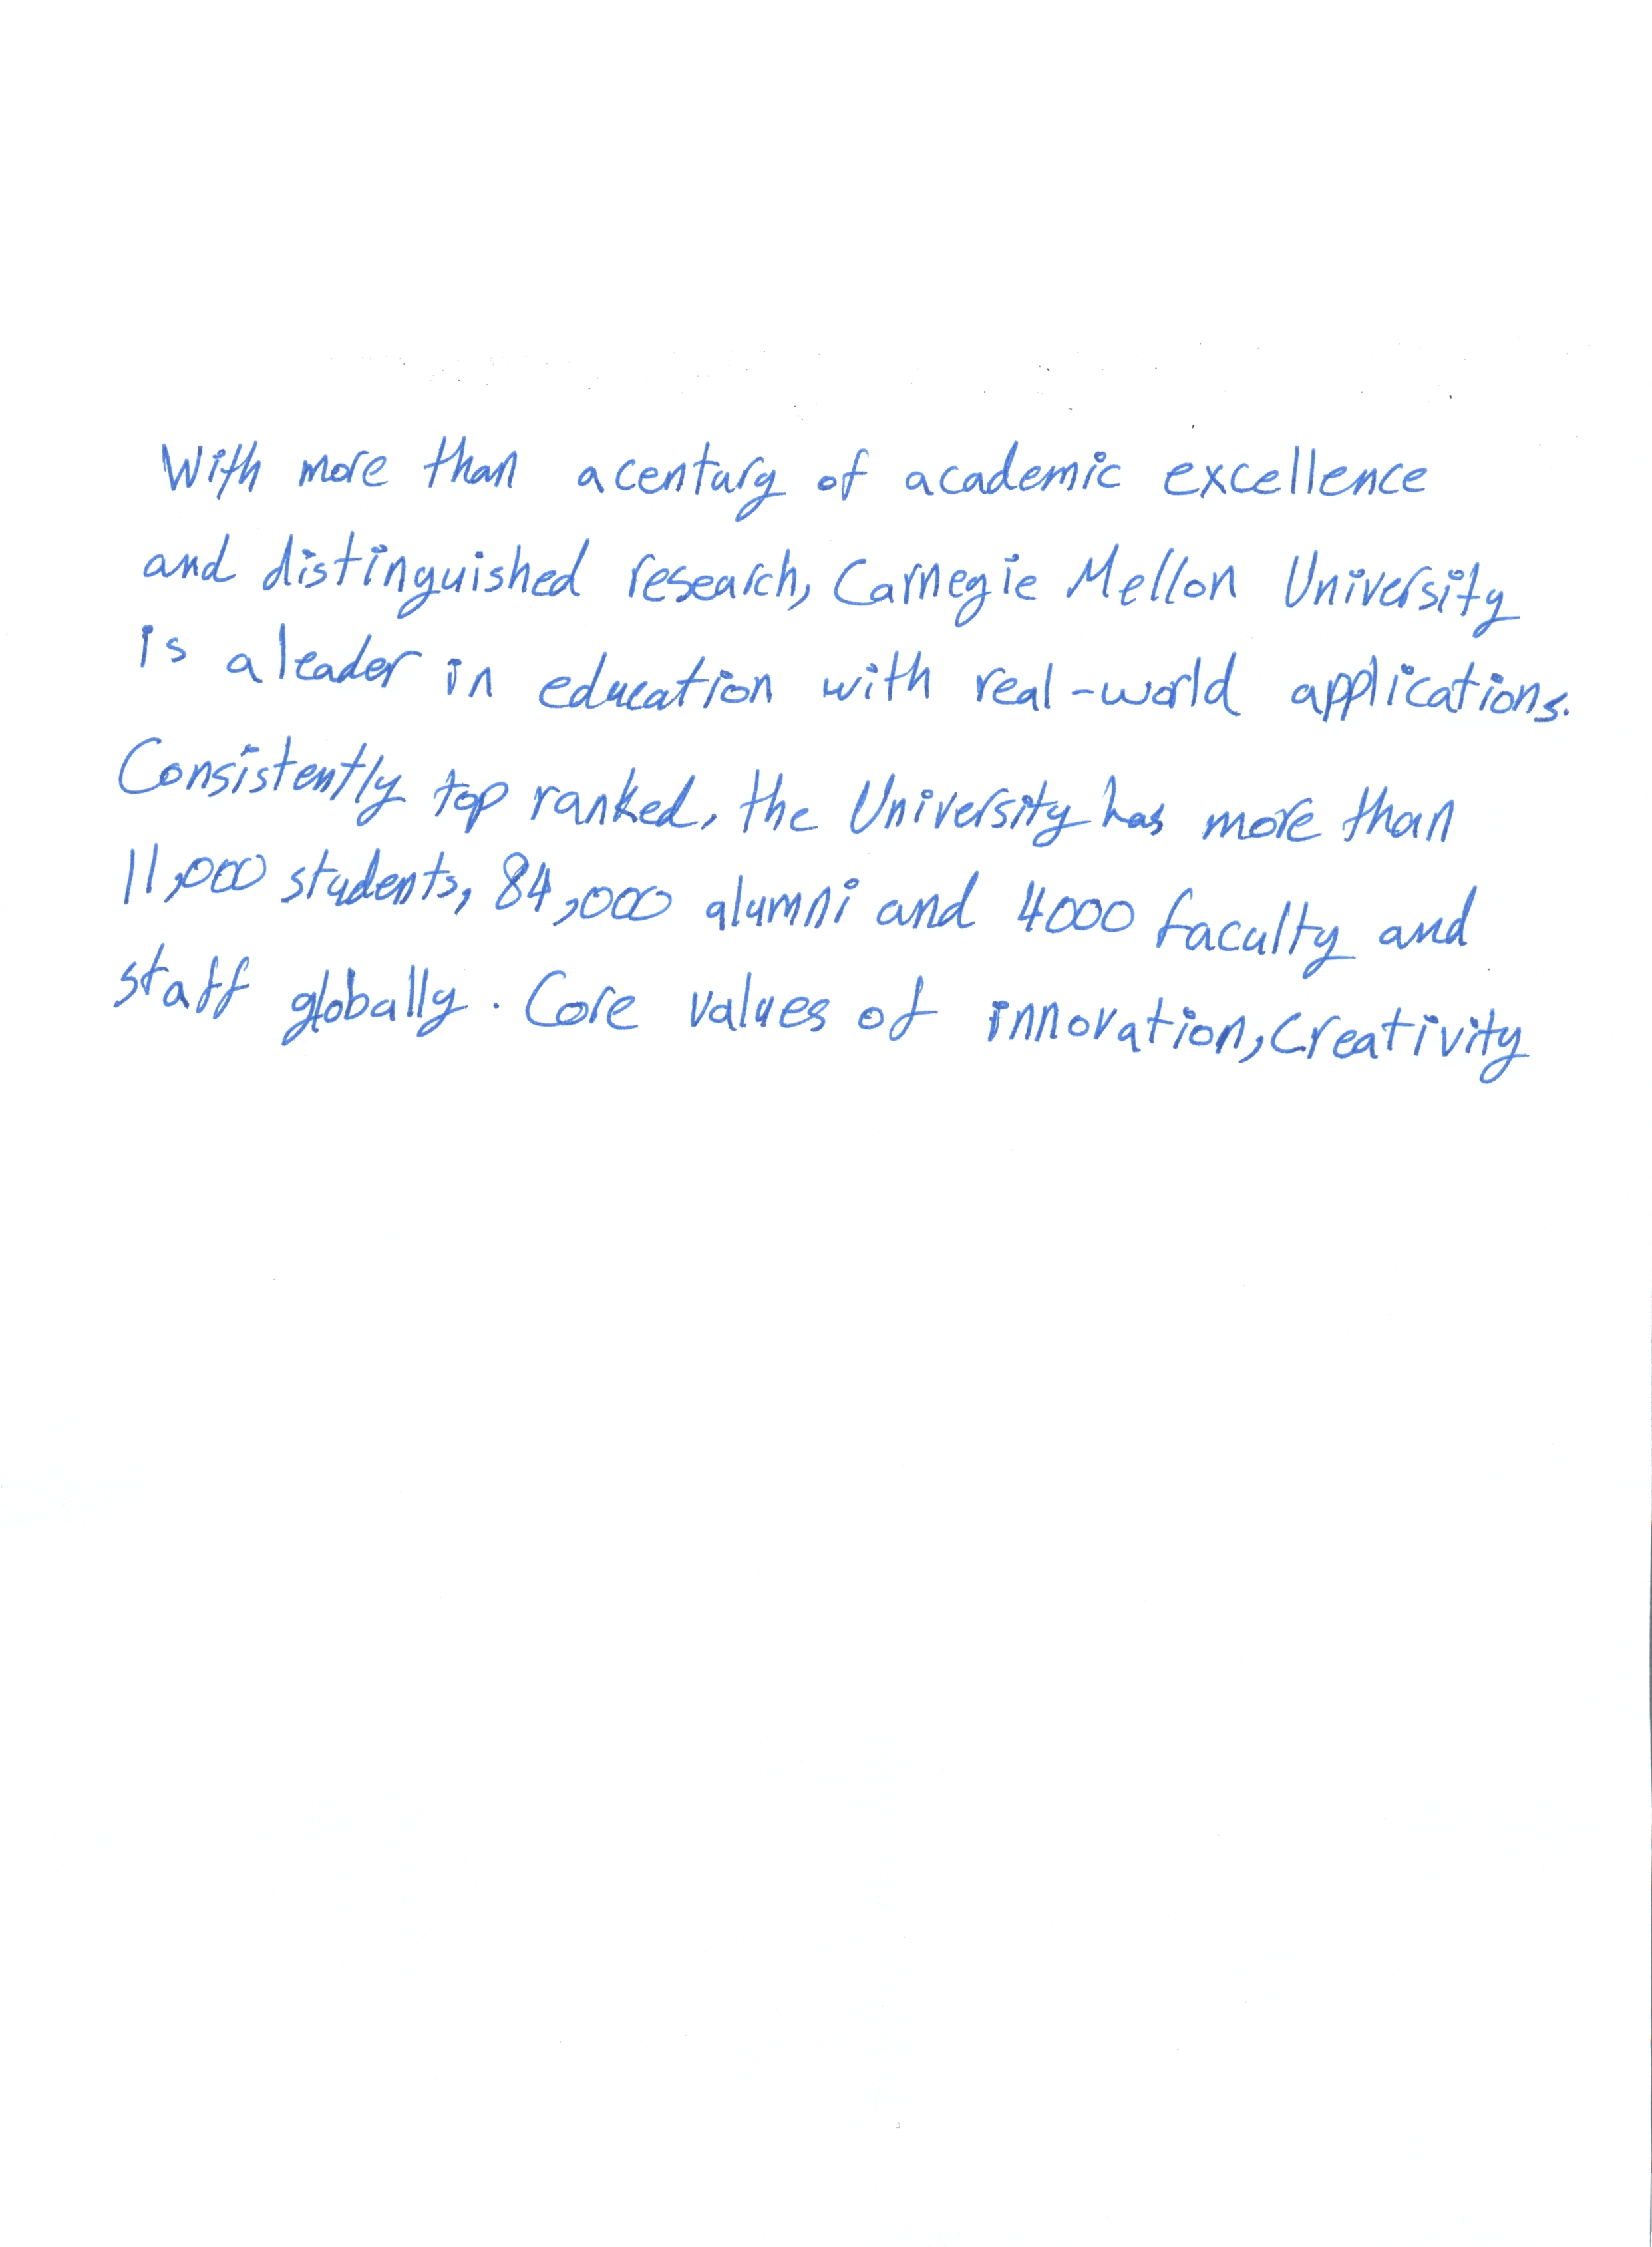 With more than a century of academic excellence
and distinguished research, Carnegie Mellon University
is a leader in education with real-world applications.
Consistently top ranked, the University has more than
11,000 students, 84,000 alumni and 4000 faculty and
staff globally. Core values of innovation, Creativity